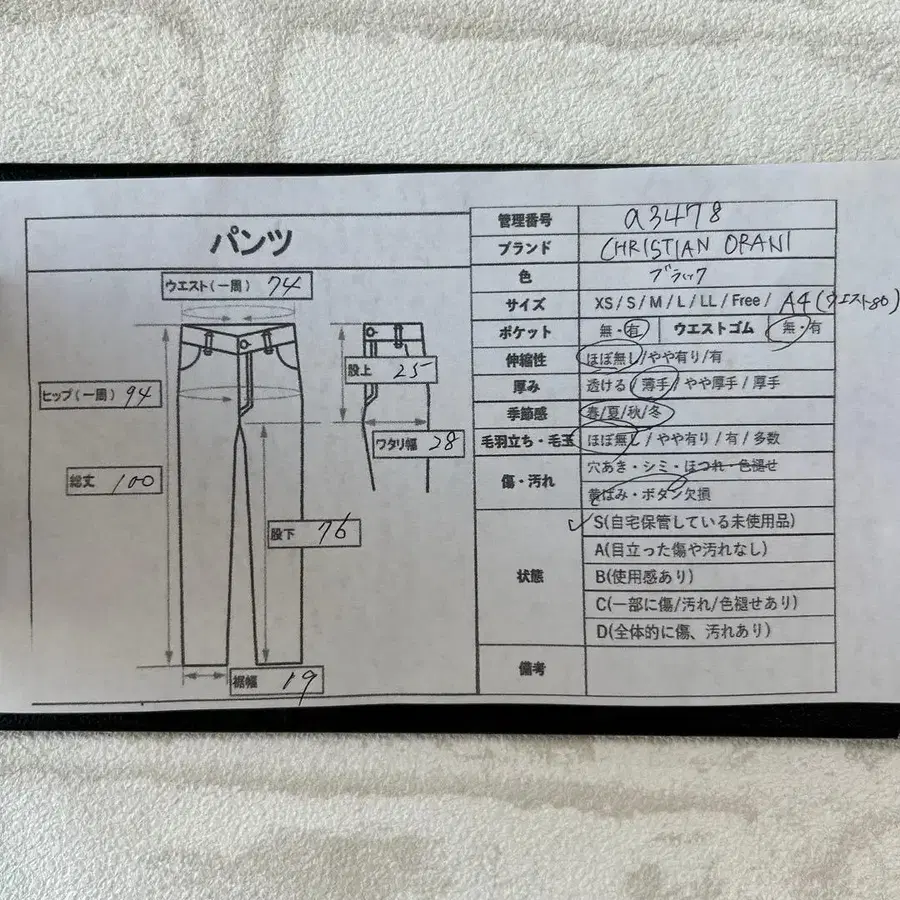 パンツ
ウエスト(一周) 74
股上 25
ヒップ(一周) 94
ワタリ幅 28
総丈 100
股下 76
裾幅 19
管理番号 a3478
ブランド CHRISTIAN ORANI
色 ブラック
サイズ XS / S / M / L / LL / Free / A4(ウエスト80)
ポケット 無・有 ウエストゴム 無・有
伸縮性 ほぼ無し/やや有り/有
厚み 透ける/薄手/やや厚手/厚手
季節感 春/夏/秋/冬
毛羽立ち・毛玉 ほぼ無し/やや有り/有/多数
傷・汚れ 穴あき・シミ・ほつれ・色褪せ
黄ばみ・ボタン欠損
状態 S(自宅保管している未使用品)
A(目立った傷や汚れなし)
B(使用感あり)
C(一部に傷/汚れ/色褪せあり)
D(全体的に傷、汚れあり)
備考